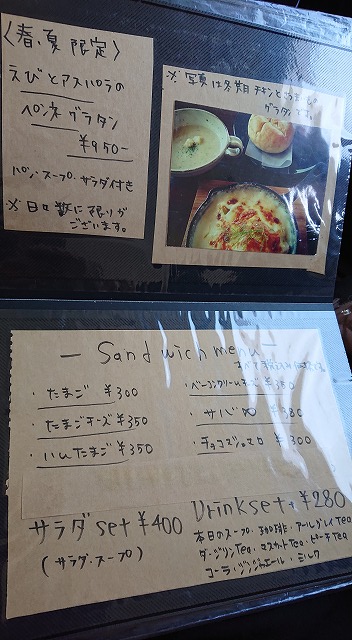 〈春、夏限定〉
えびとアスパラの
ペンネグラタン
¥950-
パン・スープ・サラダ付き
※日々数に限りが
ございます。
※写真は冬期チキンと
グラタンです。
— Sandwich menu —
・たまご ¥300
・たまごチーズ ¥350
・ハムたまご ¥350
・ベーコンクリームチーズ ¥350
・サバ ¥380
・チョコマシュマロ ¥300
サラダset ¥400
(サラダ・スープ)
Drinkset + ¥280
本日のスープ・珈琲・アールグレイTea
ダージリンTea・マスカットTea・ピーチTea
コーラ・ジンジャエール・ミルク